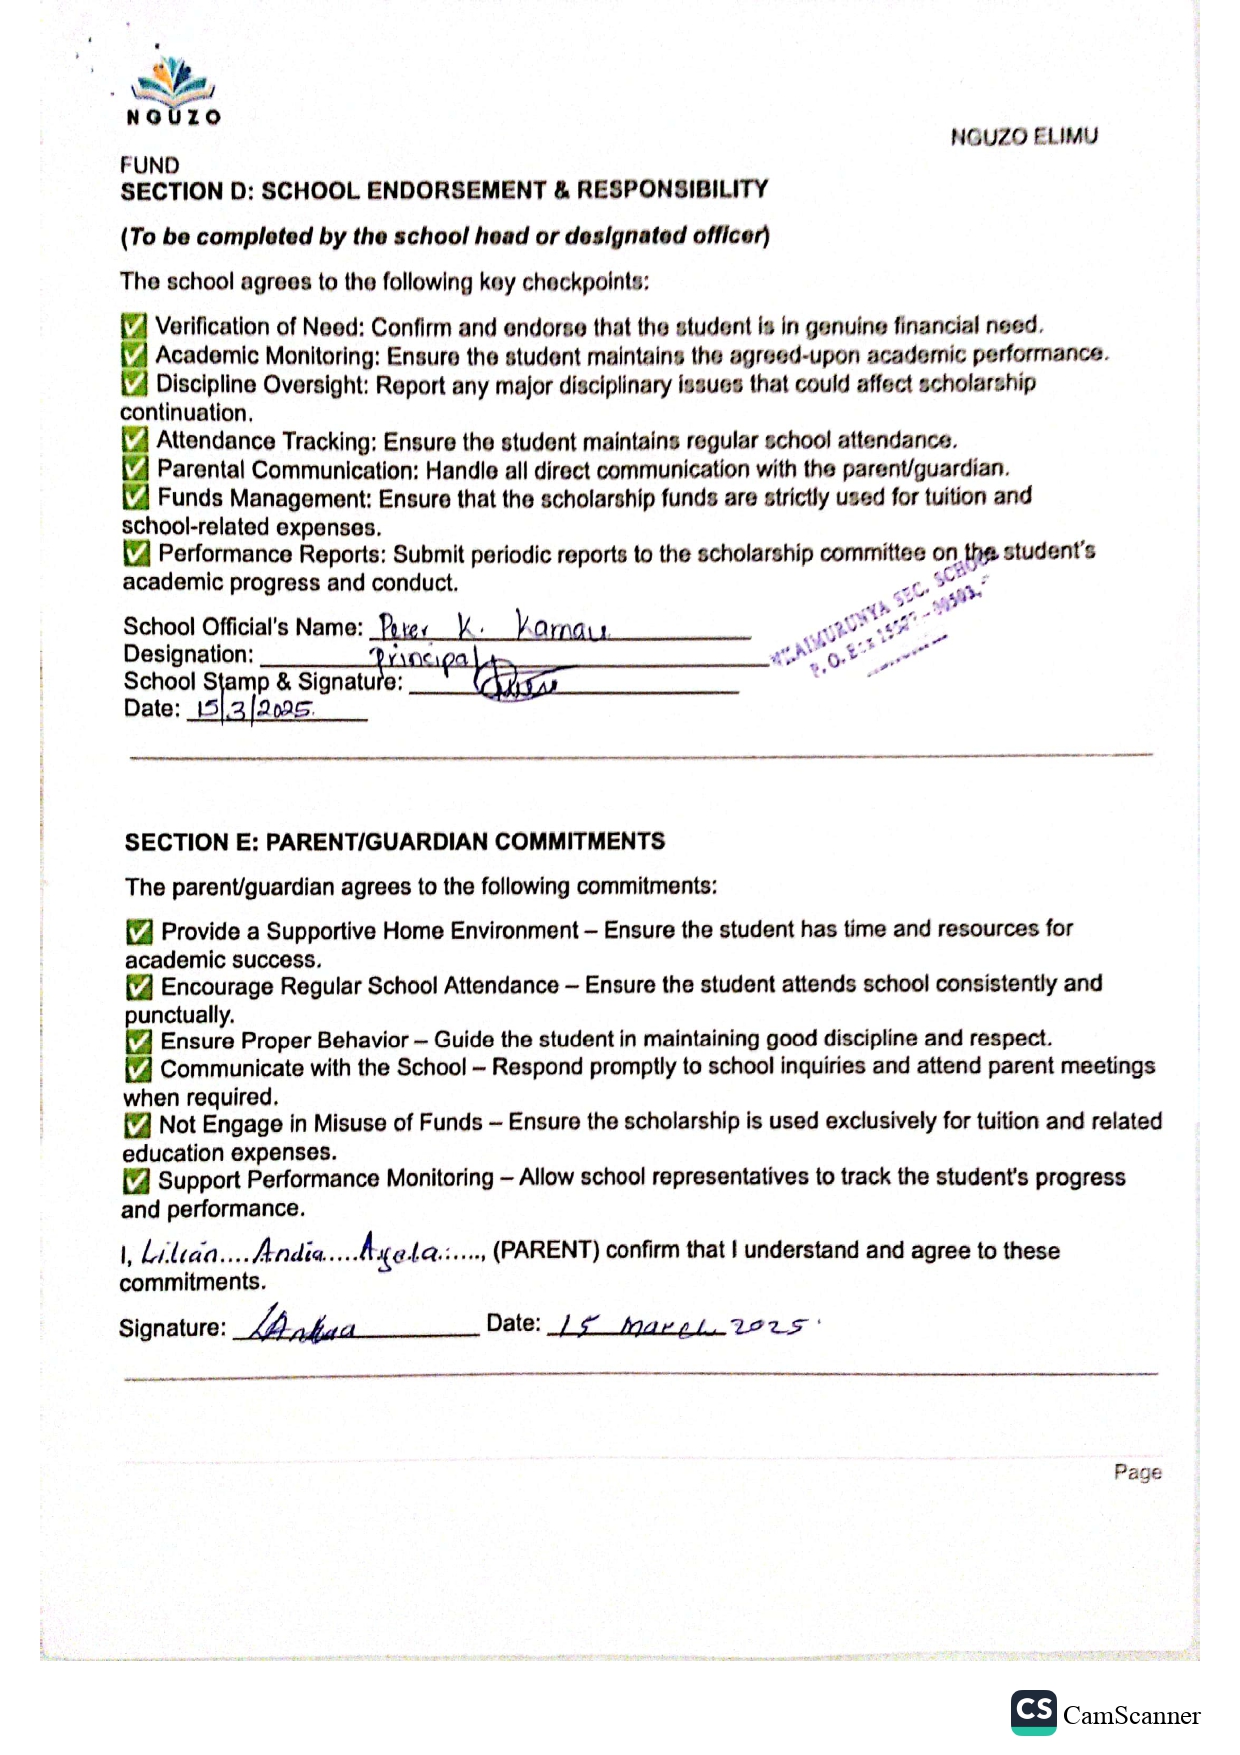 NGUZO
NGUZO ELIMU
FUND
SECTION D: SCHOOL ENDORSEMENT & RESPONSIBILITY
(To be completed by the school head or designated officer)
The school agrees to the following key checkpoints:
✅ Verification of Need: Confirm and endorse that the student is in genuine financial need.
✅ Academic Monitoring: Ensure the student maintains the agreed-upon academic performance.
✅ Discipline Oversight: Report any major disciplinary issues that could affect scholarship
continuation.
✅ Attendance Tracking: Ensure the student maintains regular school attendance.
✅ Parental Communication: Handle all direct communication with the parent/guardian.
✅ Funds Management: Ensure that the scholarship funds are strictly used for tuition and
school-related expenses.
✅ Performance Reports: Submit periodic reports to the scholarship committee on the student's
academic progress and conduct.
SEC. SCHOOL
P. O. Box
School Official's Name: Peter K. Kamau
Designation: Principal
School Stamp & Signature:
Date: 15/3/2025.
SECTION E: PARENT/GUARDIAN COMMITMENTS
The parent/guardian agrees to the following commitments:
✅ Provide a Supportive Home Environment – Ensure the student has time and resources for
academic success.
✅ Encourage Regular School Attendance – Ensure the student attends school consistently and
punctually.
✅ Ensure Proper Behavior – Guide the student in maintaining good discipline and respect.
✅ Communicate with the School – Respond promptly to school inquiries and attend parent meetings
when required.
✅ Not Engage in Misuse of Funds – Ensure the scholarship is used exclusively for tuition and related
education expenses.
✅ Support Performance Monitoring – Allow school representatives to track the student's progress
and performance.
I, Lilian....Andia.....Ayala......, (PARENT) confirm that I understand and agree to these
commitments.
Signature: Date: 15 March 2025.
Page
CS CamScanner